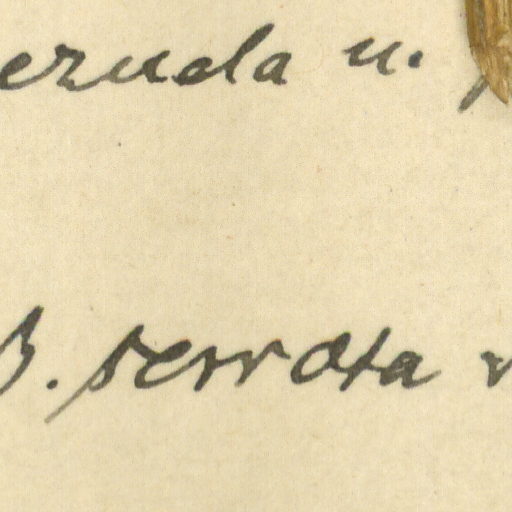 ezuela u.
B. serrata